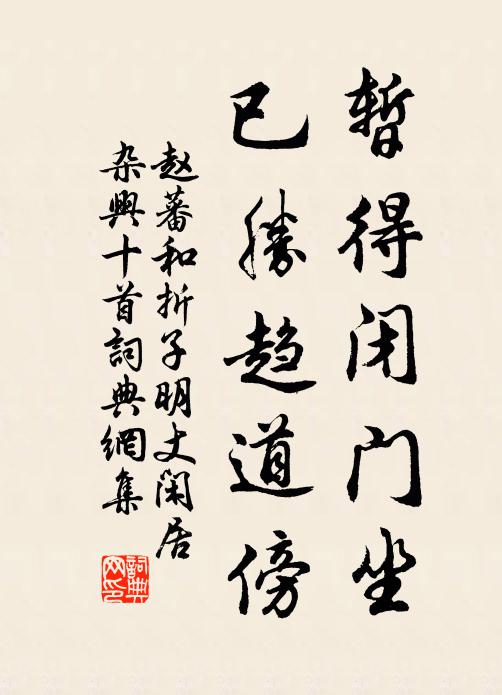 暫得闭门坐
已勝趋道傍
赵蕃和折子明丈闲居
杂興十首詞典網集
詞典网印